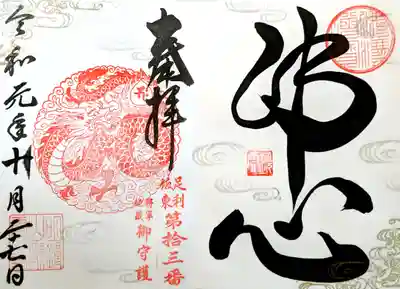 佛心
奉拝
足利
坂東
第拾三番
御守護
令和元年十一月二十七日